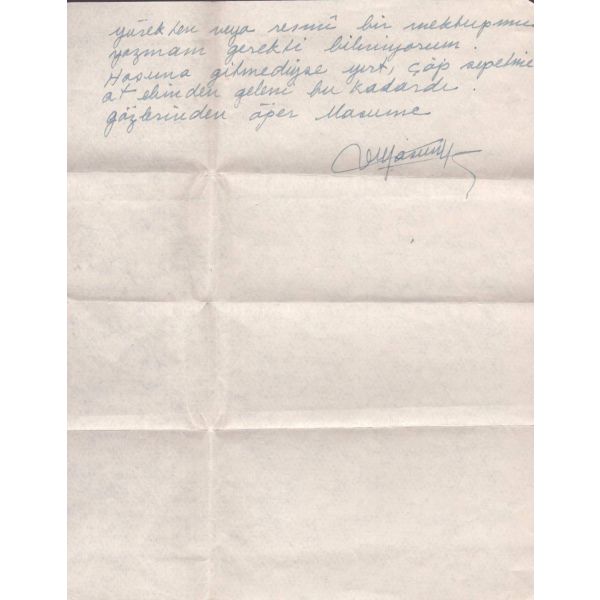 yürekten veya resmî bir mektupmu
yazmam gerekti bilmiyorum.
Hoşuna gitmediyse yırt, çöp sepetine
at elimden geleni bu kadardı.
gözlerinden öper Masume